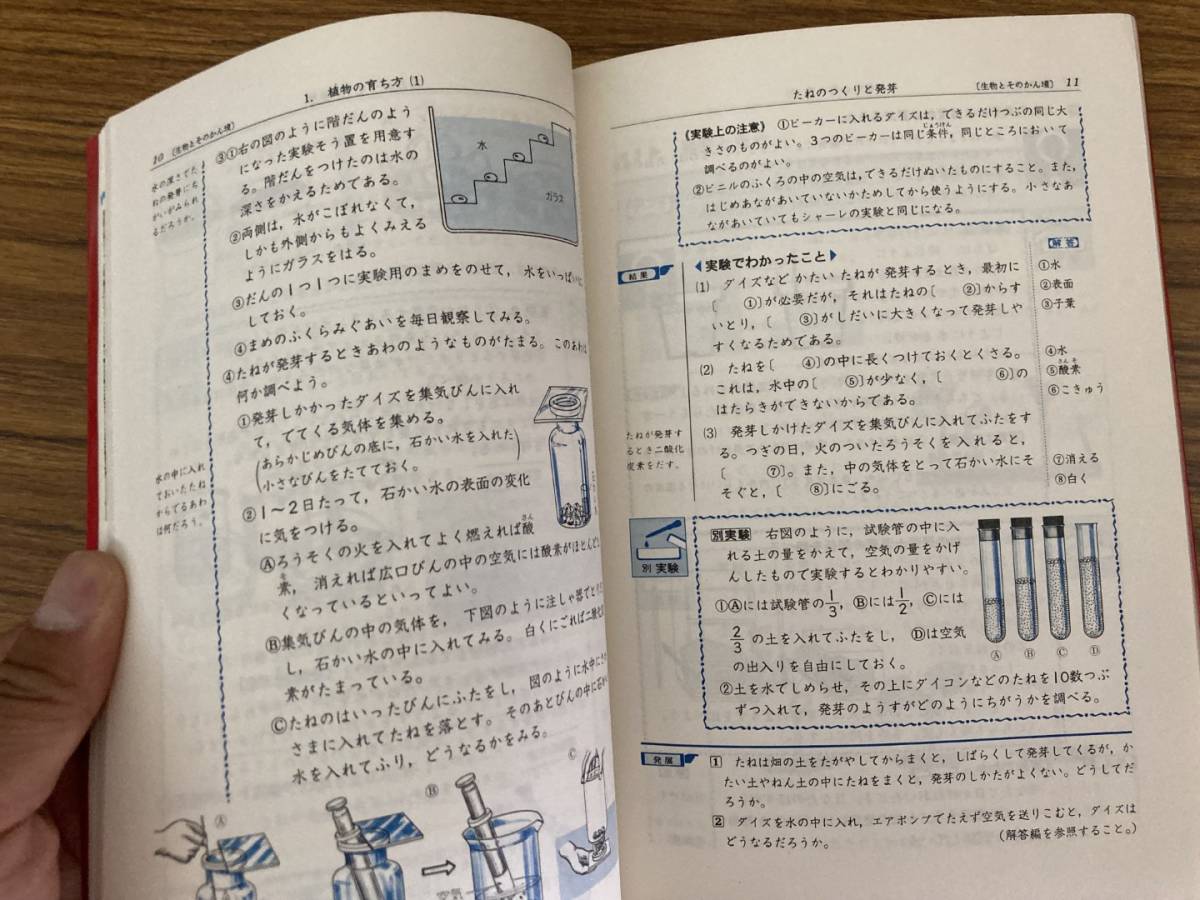 10 〔生物とそのかん境〕
1. 植物の育ち方 (1)
水の深さでた
ねの発芽にち
がいがみられ
るだろうか。
③①右の図のように階だんのよう
になった実験そう置を用意す
る。階だんをつけたのは水の
深さをかえるためである。
②両側は，水がこぼれなくて，
しかも外側からもよくみえる
ようにガラスをはる。
③だんの１つ１つに実験用のまめをのせて，水をいっぱいに
しておく。
④まめのふくらみぐあいを毎日観察してみる。
水
ガラス
水の中に入れ
ておいたたね
からでるあわ
は何だろう。
④たねが発芽するときあわのようなものがたまる。このあわは
何か調べよう。
①発芽しかかったダイズを集気びんに入れ
て，でてくる気体を集める。
（あらかじめびんの底に，石かい水を入れた
小さなびんをたてておく。）
②１〜２日たって，石かい水の表面の変化
に気をつける。
Ⓐろうそくの火を入れてよく燃えれば酸
さん
素，消えれば広口びんの中の空気には酸素がほとんど
そ
くなっているといってよい。
Ⓑ集気びんの中の気体を，下図のように注しゃ器でと
し，石かい水の中に入れてみる。白くにごれば二酸化
素がたまっている。
Ⓒたねのはいったびんにふたをし，図のように水中に
さまに入れてたねを落とす。そのあとびんの中に石
水を入れてふり，どうなるかをみる。
Ⓐ
Ⓑ
Ⓒ
空気
たねのつくりと発芽
〔生物とそのかん境〕 11
《実験上の注意》 ①ビーカーに入れるダイズは，できるだけつぶの同じ大
きさのものがよい。３つのビーカーは同じ条件，同じところにおいて
じょうけん
調べるのがよい。
②ビニルのふくろの中の空気は，できるだけぬいたものにすること。また，
はじめあながあいていないかためしてから使うようにする。小さなあ
ながあいていてもシャーレの実験と同じになる。
結果
◀実験でわかったこと▶
解答
(1) ダイズなど かたい たねが 発芽する とき，最初に
〔 ①〕が必要だが，それはたねの〔 ②〕からす
いとり，〔 ③〕がしだいに大きくなって発芽しや
すくなるためである。
(2) たねを〔 ④〕の中に長くつけておくとくさる。
これは，水中の〔 ⑤〕が少なく，〔 ⑥〕の
はたらきができないからである。
(3) 発芽しかけたダイズを集気びんに入れてふたをす
る。つぎの日，火のついたろうそくを入れると，
〔 ⑦〕。また，中の気体をとって石かい水にそ
そぐと，〔 ⑧〕にごる。
たねが発芽す
るとき二酸化
炭素をだす。
①水
②表面
③子葉
④水
さんそ
⑤酸素
⑥こきゅう
⑦消える
⑧白く
別 実験
別実験 右図のように，試験管の中に入
れる土の量をかえて，空気の量をかげ
んしたもので実験するとわかりやすい。
①Ⓐには試験管の1/3，Ⓑには1/2，Ⓒには
2/3 の土を入れてふたをし，Ⓓは空気
の出入りを自由にしておく。
②土を水でしめらせ，その上にダイコンなどのたねを10数つぶ
ずつ入れて，発芽のようすがどのようにちがうかを調べる。
Ⓐ Ⓑ Ⓒ Ⓓ
発展
1 たねは畑の土をたがやしてからまくと，しばらくして発芽してくるが，か
たい土やねん土の中にたねをまくと，発芽のしかたがよくない。どうしてだ
ろうか。
2 ダイズを水の中に入れ，エアポンプでたえず空気を送りこむと，ダイズは
どうなるだろうか。 （解答編を参照すること。）